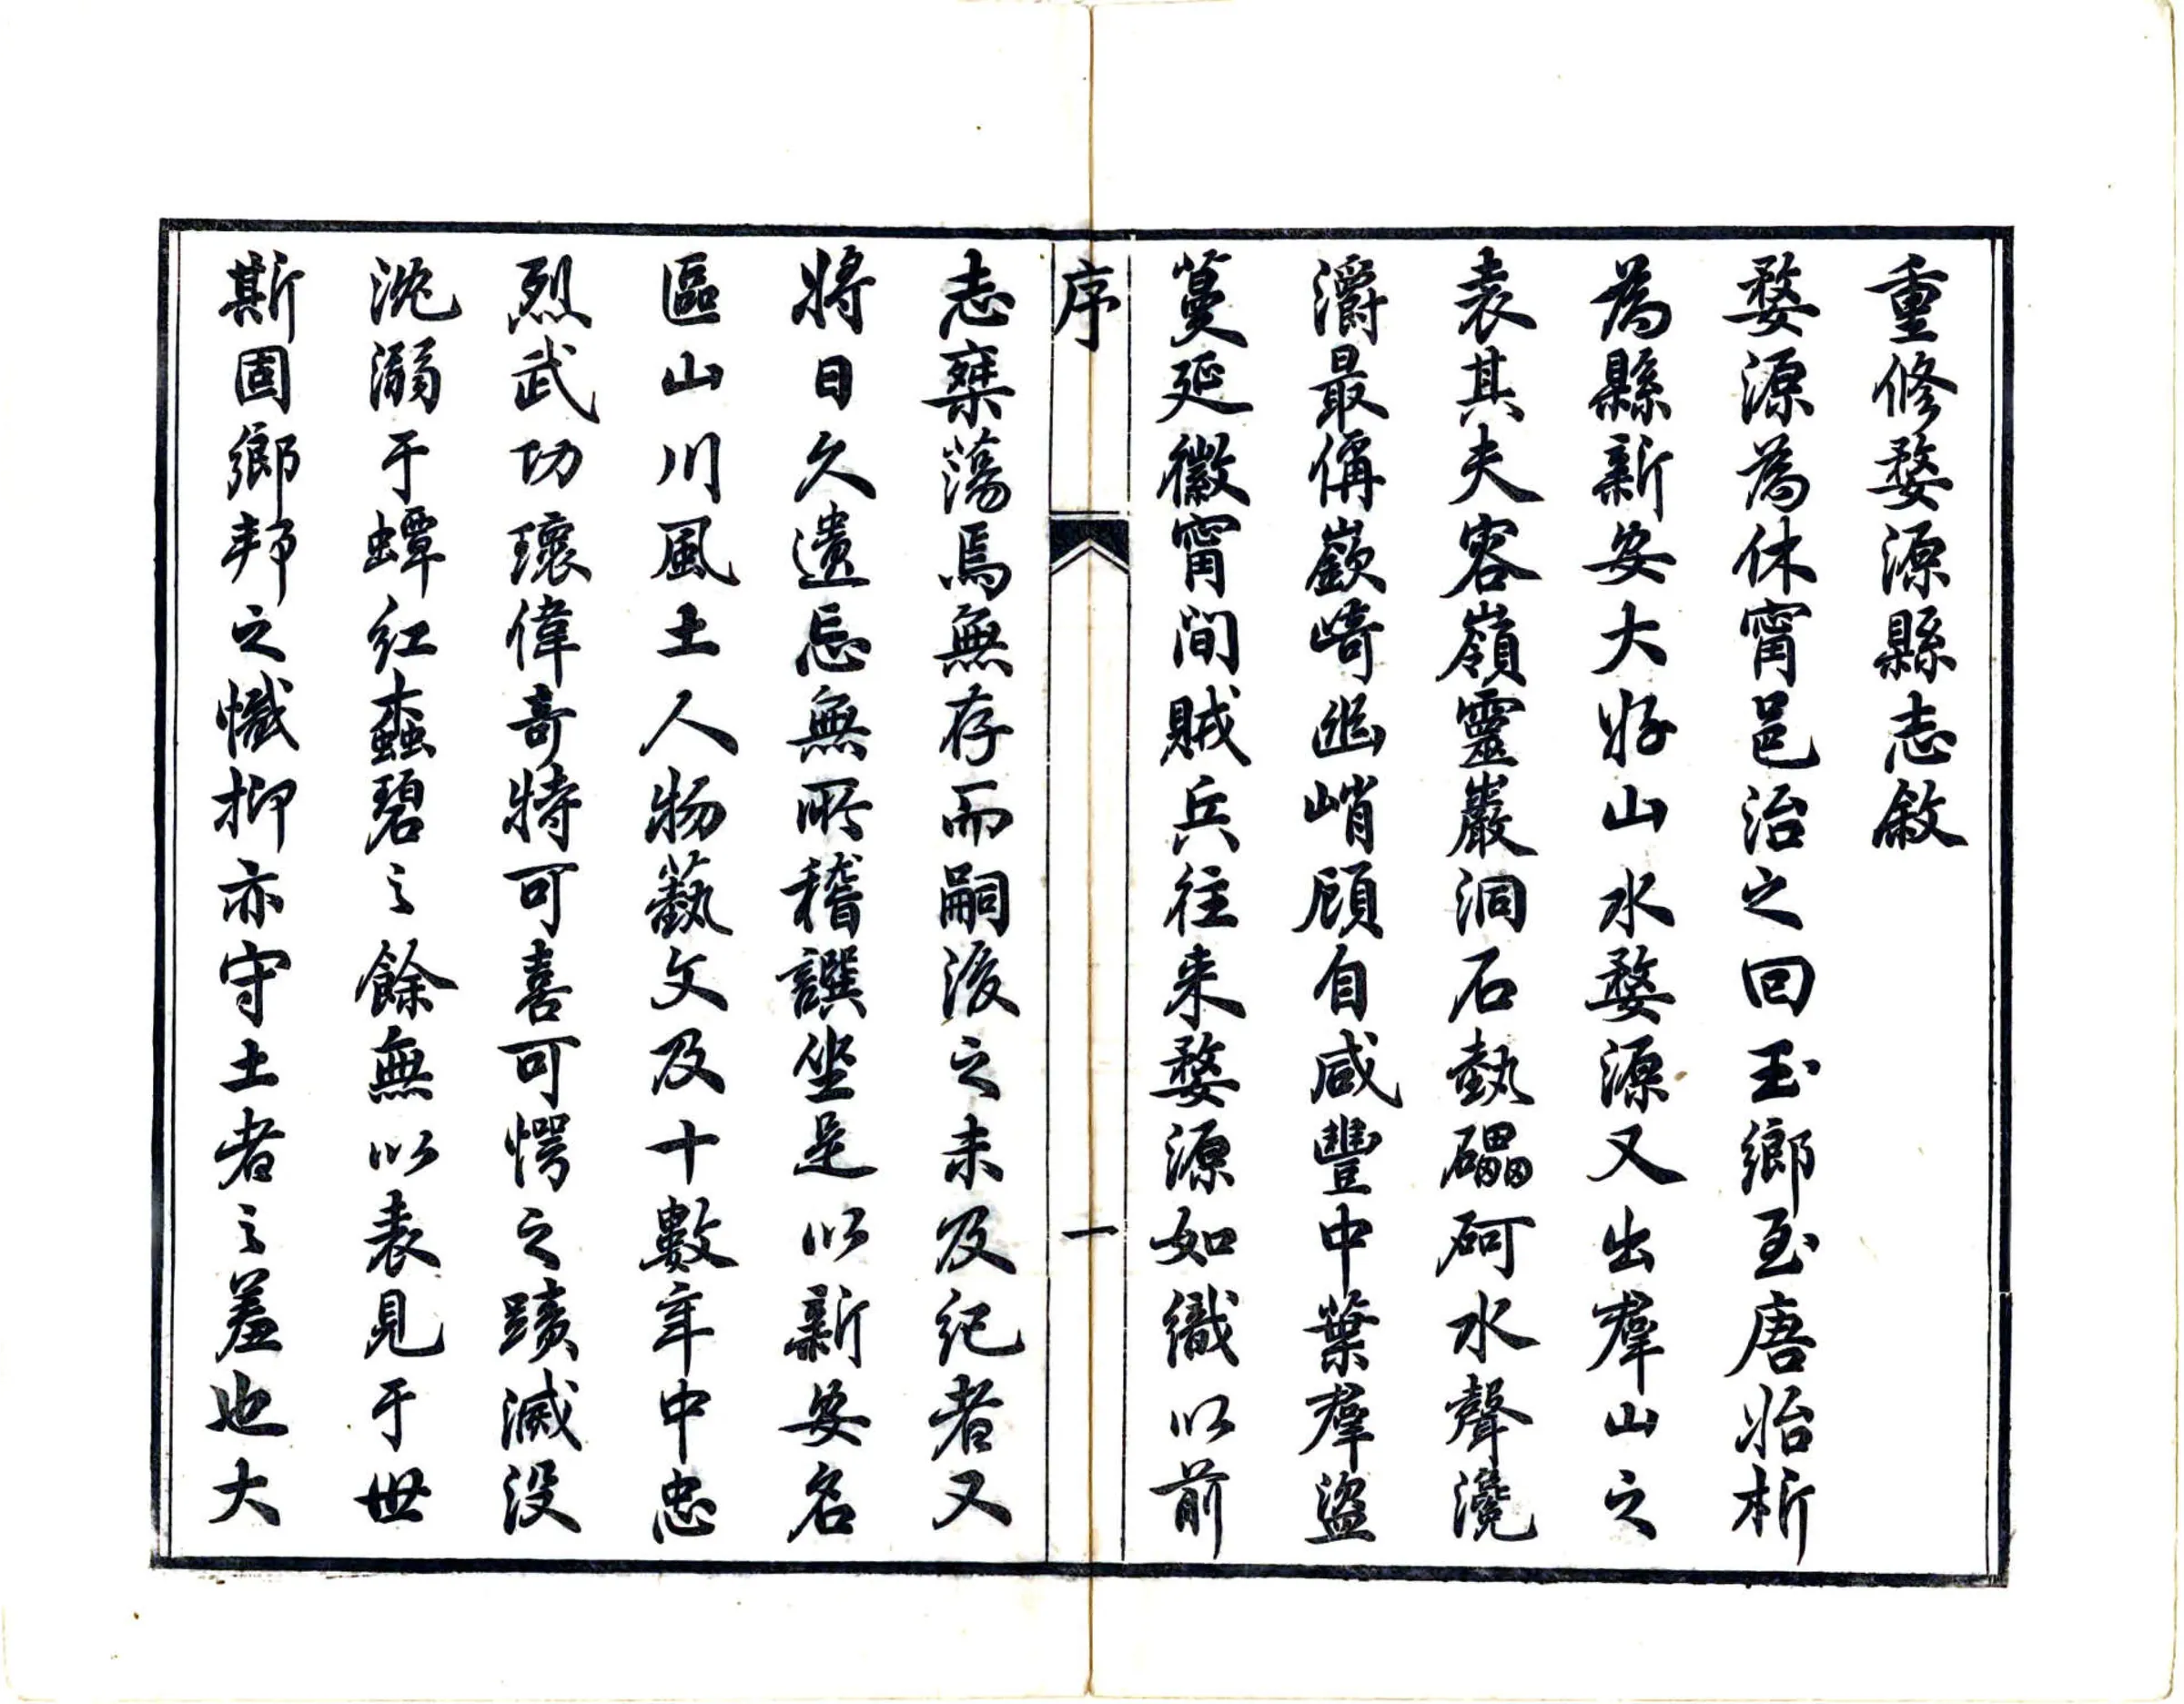 重修婺源縣志敘
婺源為休甯邑治之回玉鄉至唐始析
為縣新安大好山水婺源又出羣山之
表其夫容嶺靈巖洞石埶礧砢水聲濺
灂最偁嶔崎幽峭顧自咸豐中葉羣盜
蔓延徽甯閒賊兵往来婺源如織以前
序
一
志槩蕩焉無存而嗣後之未及紀者又
將日久遺忘無所稽譔坐是以新安名
區山川風土人物蓺文及十數年中忠
烈武功瓌偉奇特可喜可愕之蹟滅沒
沈溺于蟫紅蠹碧之餘無以表見于世
斯固鄉邦之憾抑亦守土者之羞也大